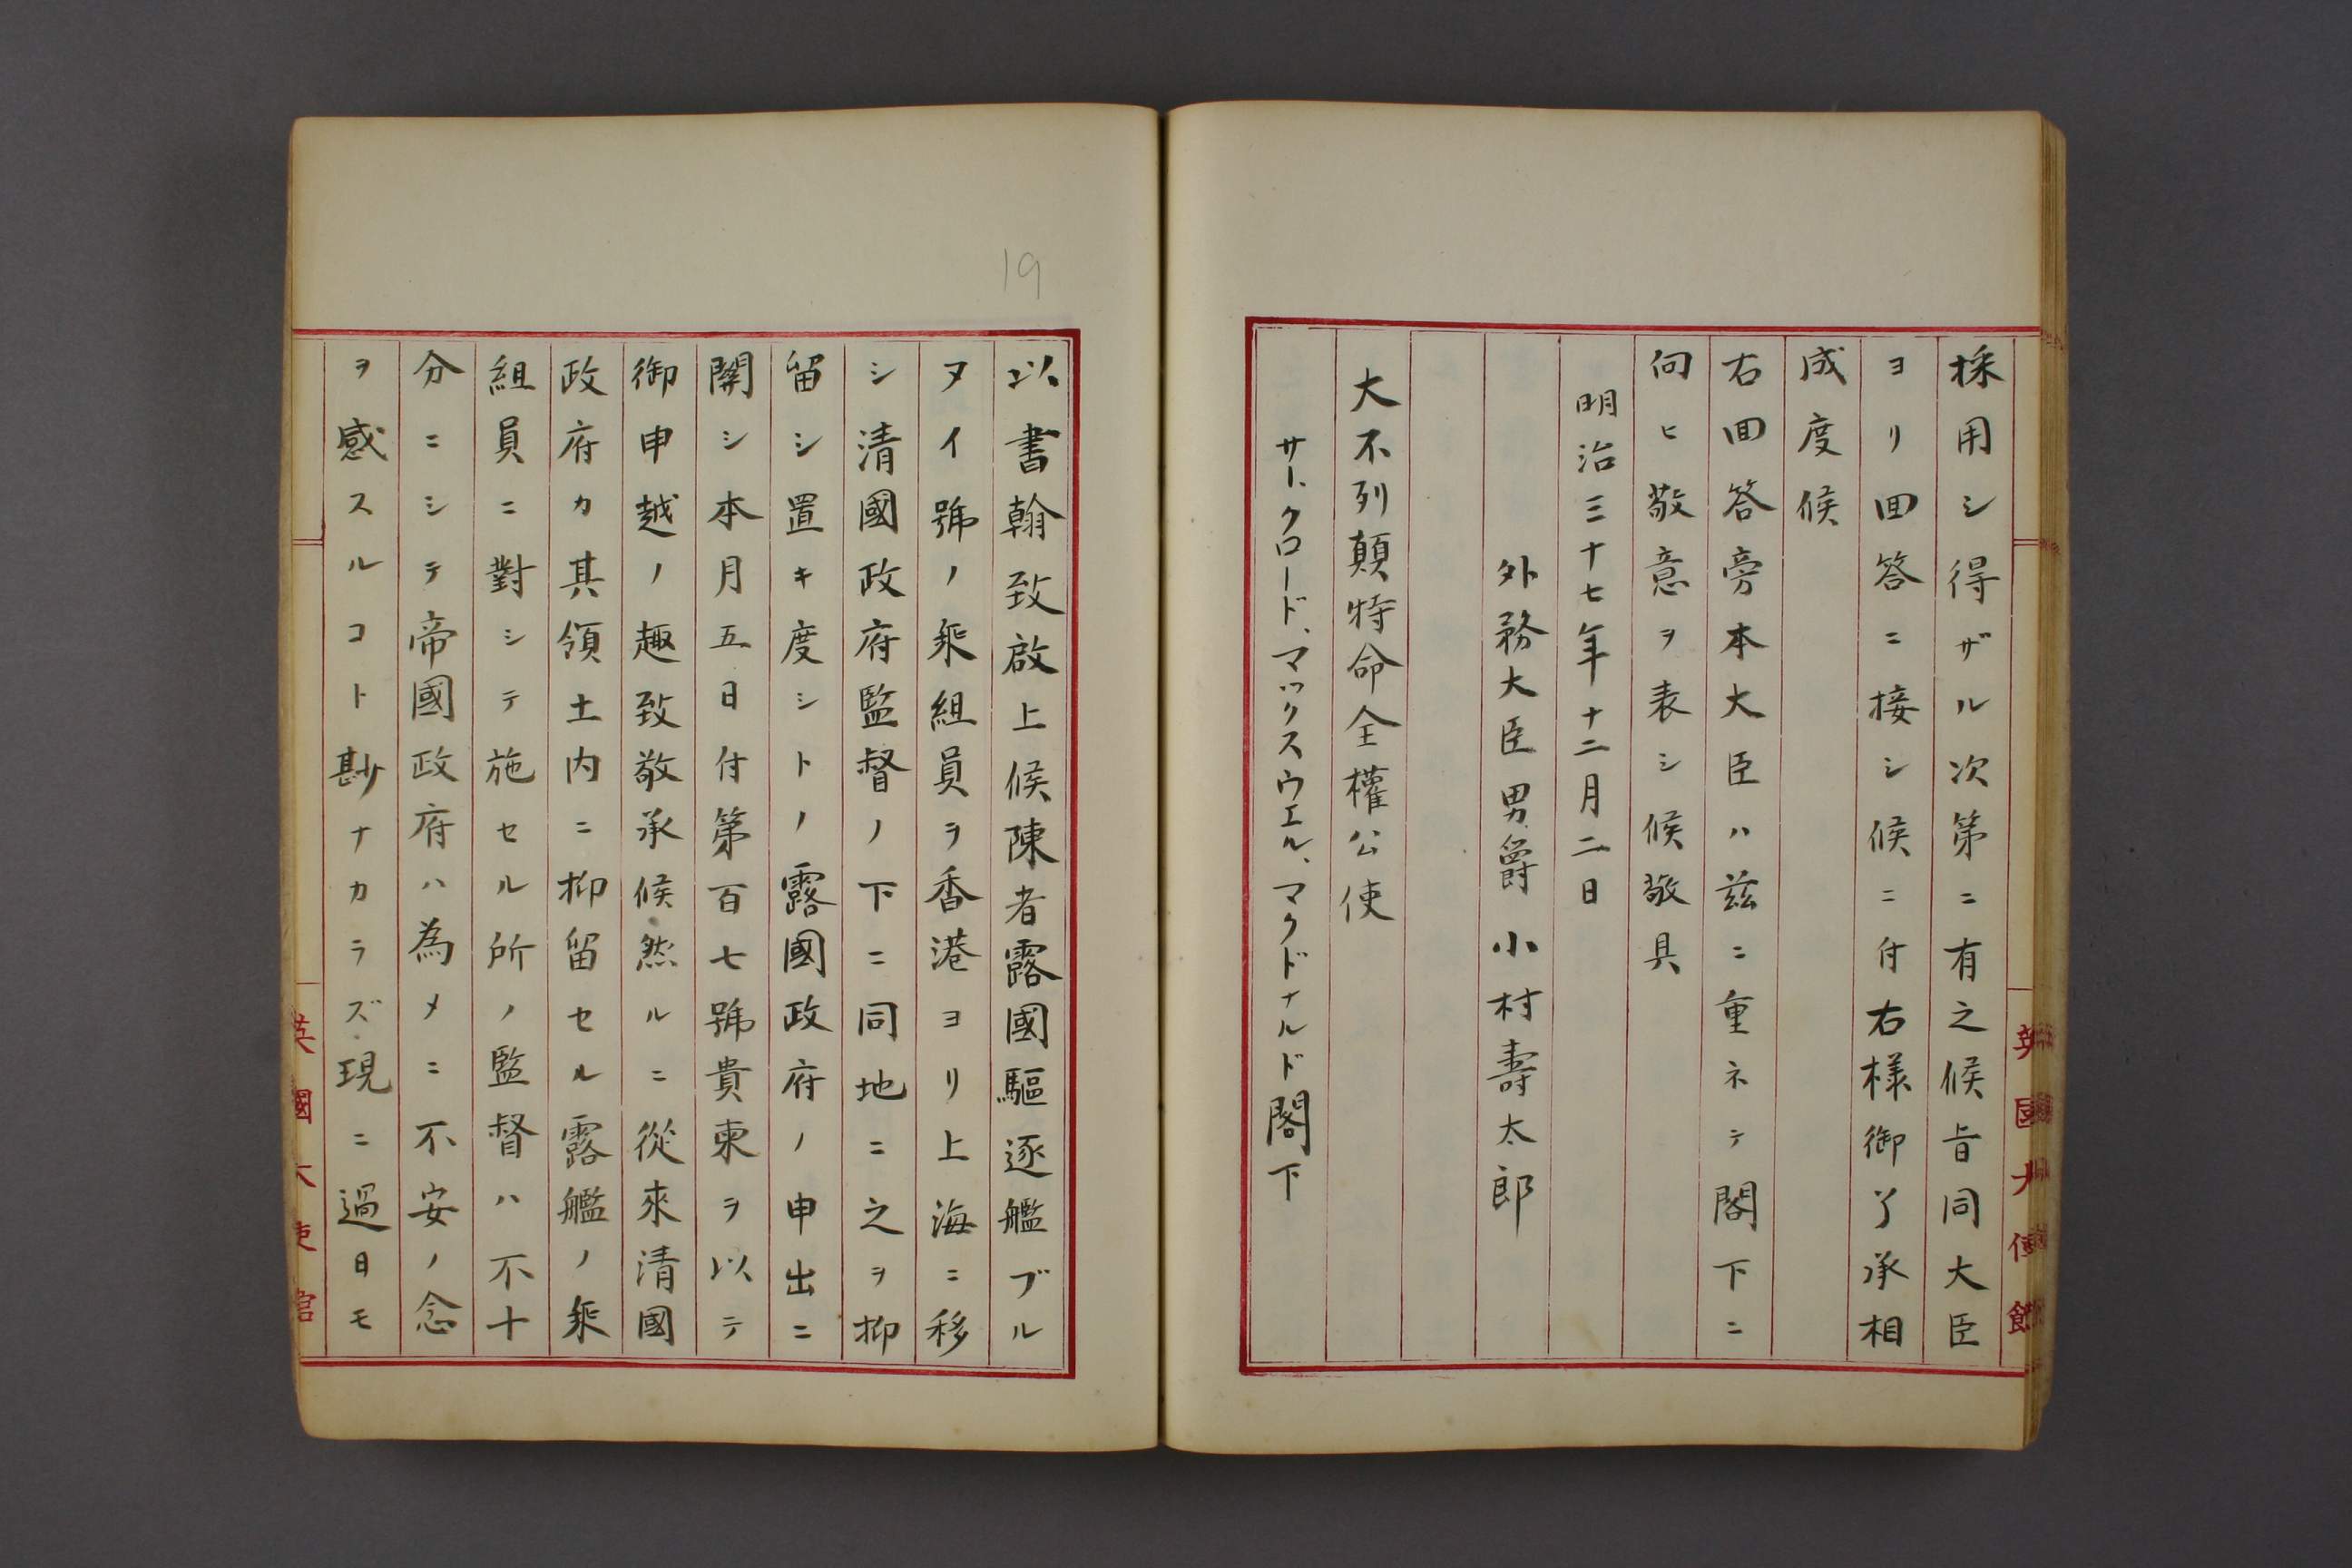 採用シ得ザル次第ニ有之候旨同大臣
ヨリ回答ニ接シ候ニ付右様御了承相
成度候
右回答旁本大臣ハ茲ニ重ネテ閣下ニ
向ヒ敬意ヲ表シ候敬具
明治三十七年十二月二日
外務大臣男爵小村壽太郎
大不列顛特命全權公使
サー、クロード、マックスウエル、マクドナルド閣下
英國大使館
19
以書翰致啟上候陳者露國驅逐艦ブル
ヌイ號ノ乘組員ヲ香港ヨリ上海ニ移
シ清國政府監督ノ下ニ同地ニ之ヲ抑
留シ置キ度シトノ露國政府ノ申出ニ
關シ本月五日付第百七號貴柬ヲ以テ
御申越ノ趣致敬承候然ルニ從來清國
政府カ其領土内ニ抑留セル露艦ノ乘
組員ニ對シテ施セル所ノ監督ハ不十
分ニシテ帝國政府ハ為メニ不安ノ念
ヲ感スルコト尠ナカラズ現ニ過日モ
英國大使館